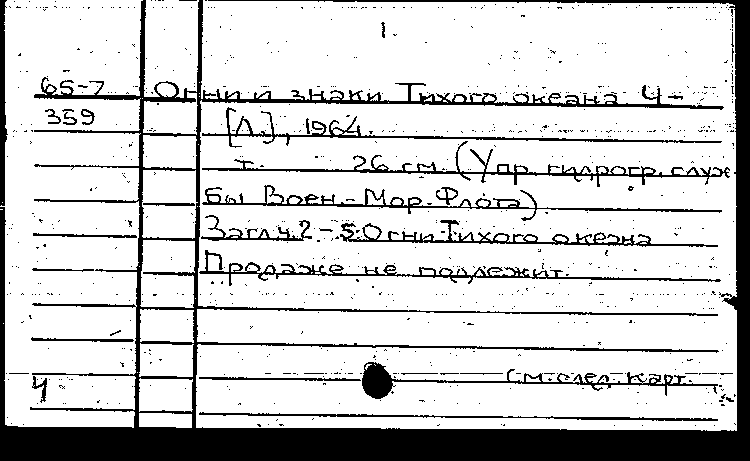 1.
65-7 Огни и знаки Тихого океана Ч-
359 [Л.], 1964.
т. 26 см. (Упр. гидрогр. служ-
бы Воен.-Мор. Флота).
Загл. ч. 2-5: Огни Тихого океана
Продаже не подлежит.
См. след. карт.
Ч